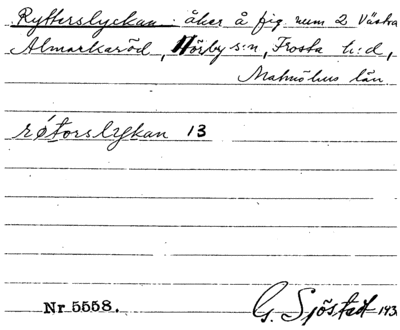 Rytterslyckan: åker å fig. num 2 Västra
Almarkaröd, Hörby s:n, Frosta h:d,
Malmöhus län.
røtorslykan 13
Nr 5558. G. Sjöstedt 193